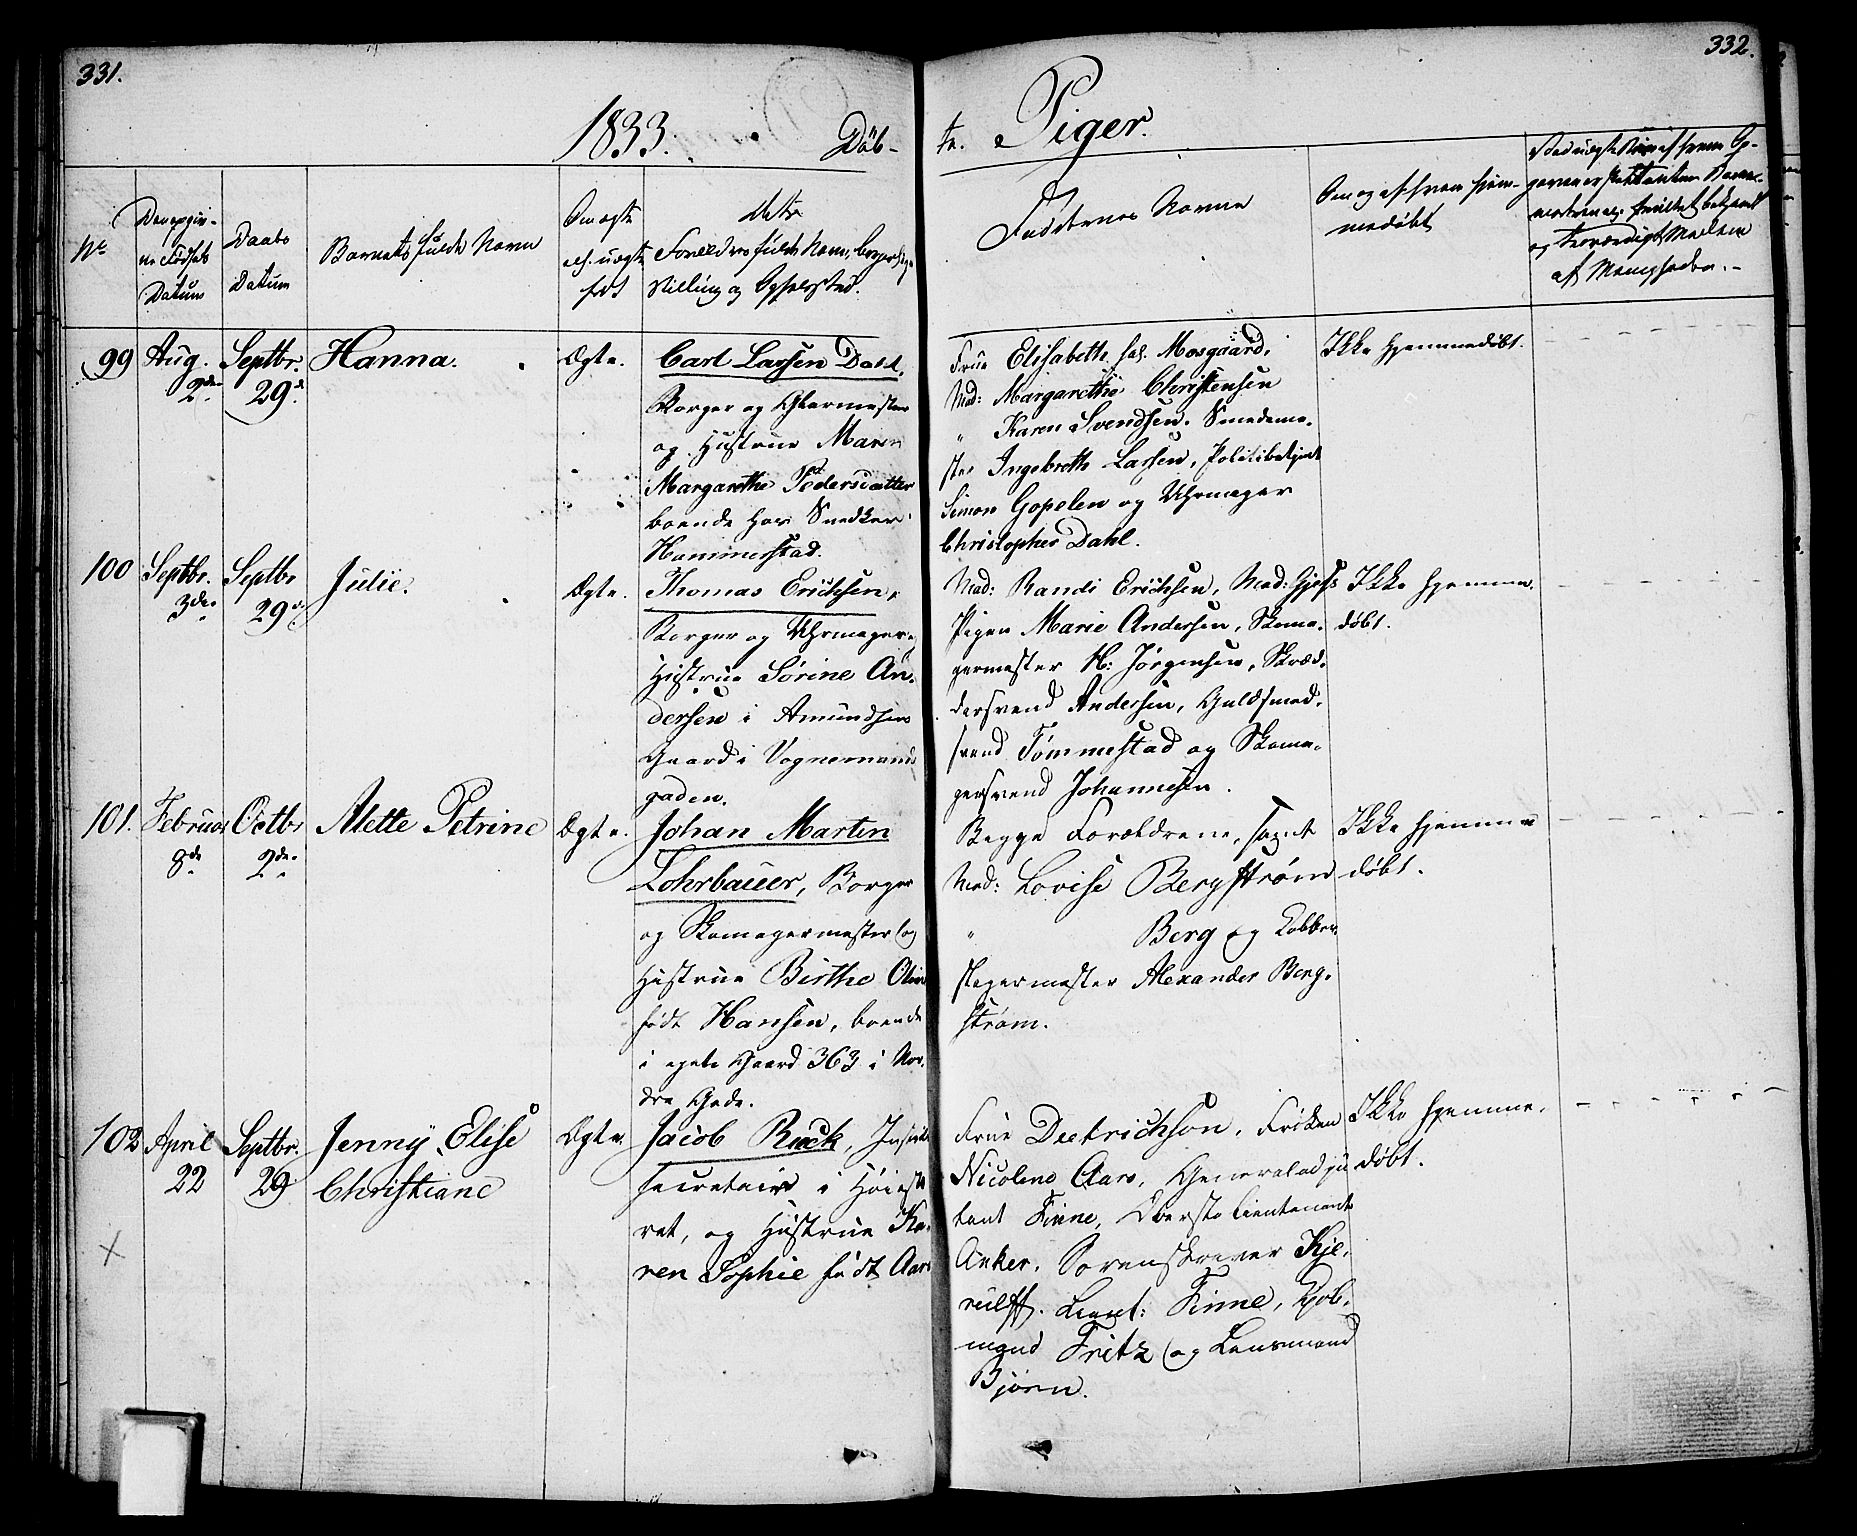 331.
332.
1833. Döb-
te. Piger.
No
Den opgiv-
ne Fødsels
Datum
Daabs
Datum
Barnets fulde Navn
Om ægte
el. uægte
født
Forældres fulde Navn, borgerlige
Stilling og Opholdssted.
Faddernes Navne
Om og af hvem hjem-
medøbt
99
Aug.
2de.
Septbr.
29d.
Hanna.
Ægte.
Carl Larsen Dahl,
Borger og Glarmester
og Hustrue Maren
Margarethe Pedersdatter
boende hos Snedker
Hammerstad.
Frue Elisabeth sal. Mosgaard,
Mad: Margarethe Christensen
" Karen Svendsen. Smedeme-
ster Ingebreth Larsen, Politibetjent
Simon Gopelen og Uhrmager
Christopher Dahl.
Ikke hjemmedøbt.
100
Septbr.
3de.
Septbr
29de.
Julie.
Ægte.
Thomas Erichsen,
Borger og Uhrmager,
Hustrue Sørine An-
dersen i Amundsens
Gaard i Vognmands
gaden.
Mad: Randi Erichsen, Mad:
Pigen Marie Andersen, Skoma-
germester H: Jørgensen, Skræd-
dersvend Andersen, Guldsmed-
svend Tømmestad og Skoma-
gersvend Johannesen.
Ikke hjemme-
døbt.
101.
Februar
8de.
Octbr
2de.
Alette Petrine
Ægte.
Johan Martin
Lohrbauer, Borger
og Skomagermester og
Hustrue Birthe Olive
født Hansen, boende
i egen Gaard 363 i Nor-
dre Gade.
Begge Forældrene, samt
Mad: Lovise Bergstrøm
" Berg og Kobber-
slagermester Alexander Berg-
strøm.
Ikke hjemme
døbt.
102
April
22
Septbr.
29
Jenny Elise
Christiane
Ægte.
Jacob Rück, Justits
secretair i Høieste
ret, og Hustrue Ka-
ren Sophie født Aars
Frue Dietrichson, Frøken
Nicoline Aars, Generaladju
tant Finne, Oberstelieutenant
Anker, Sorenskriver Kje-
rulff. Lieut: Finne, Kjøb-
mand Fritz og Lensmand
Bjørn.
Ikke hjemme-
døbt.
X